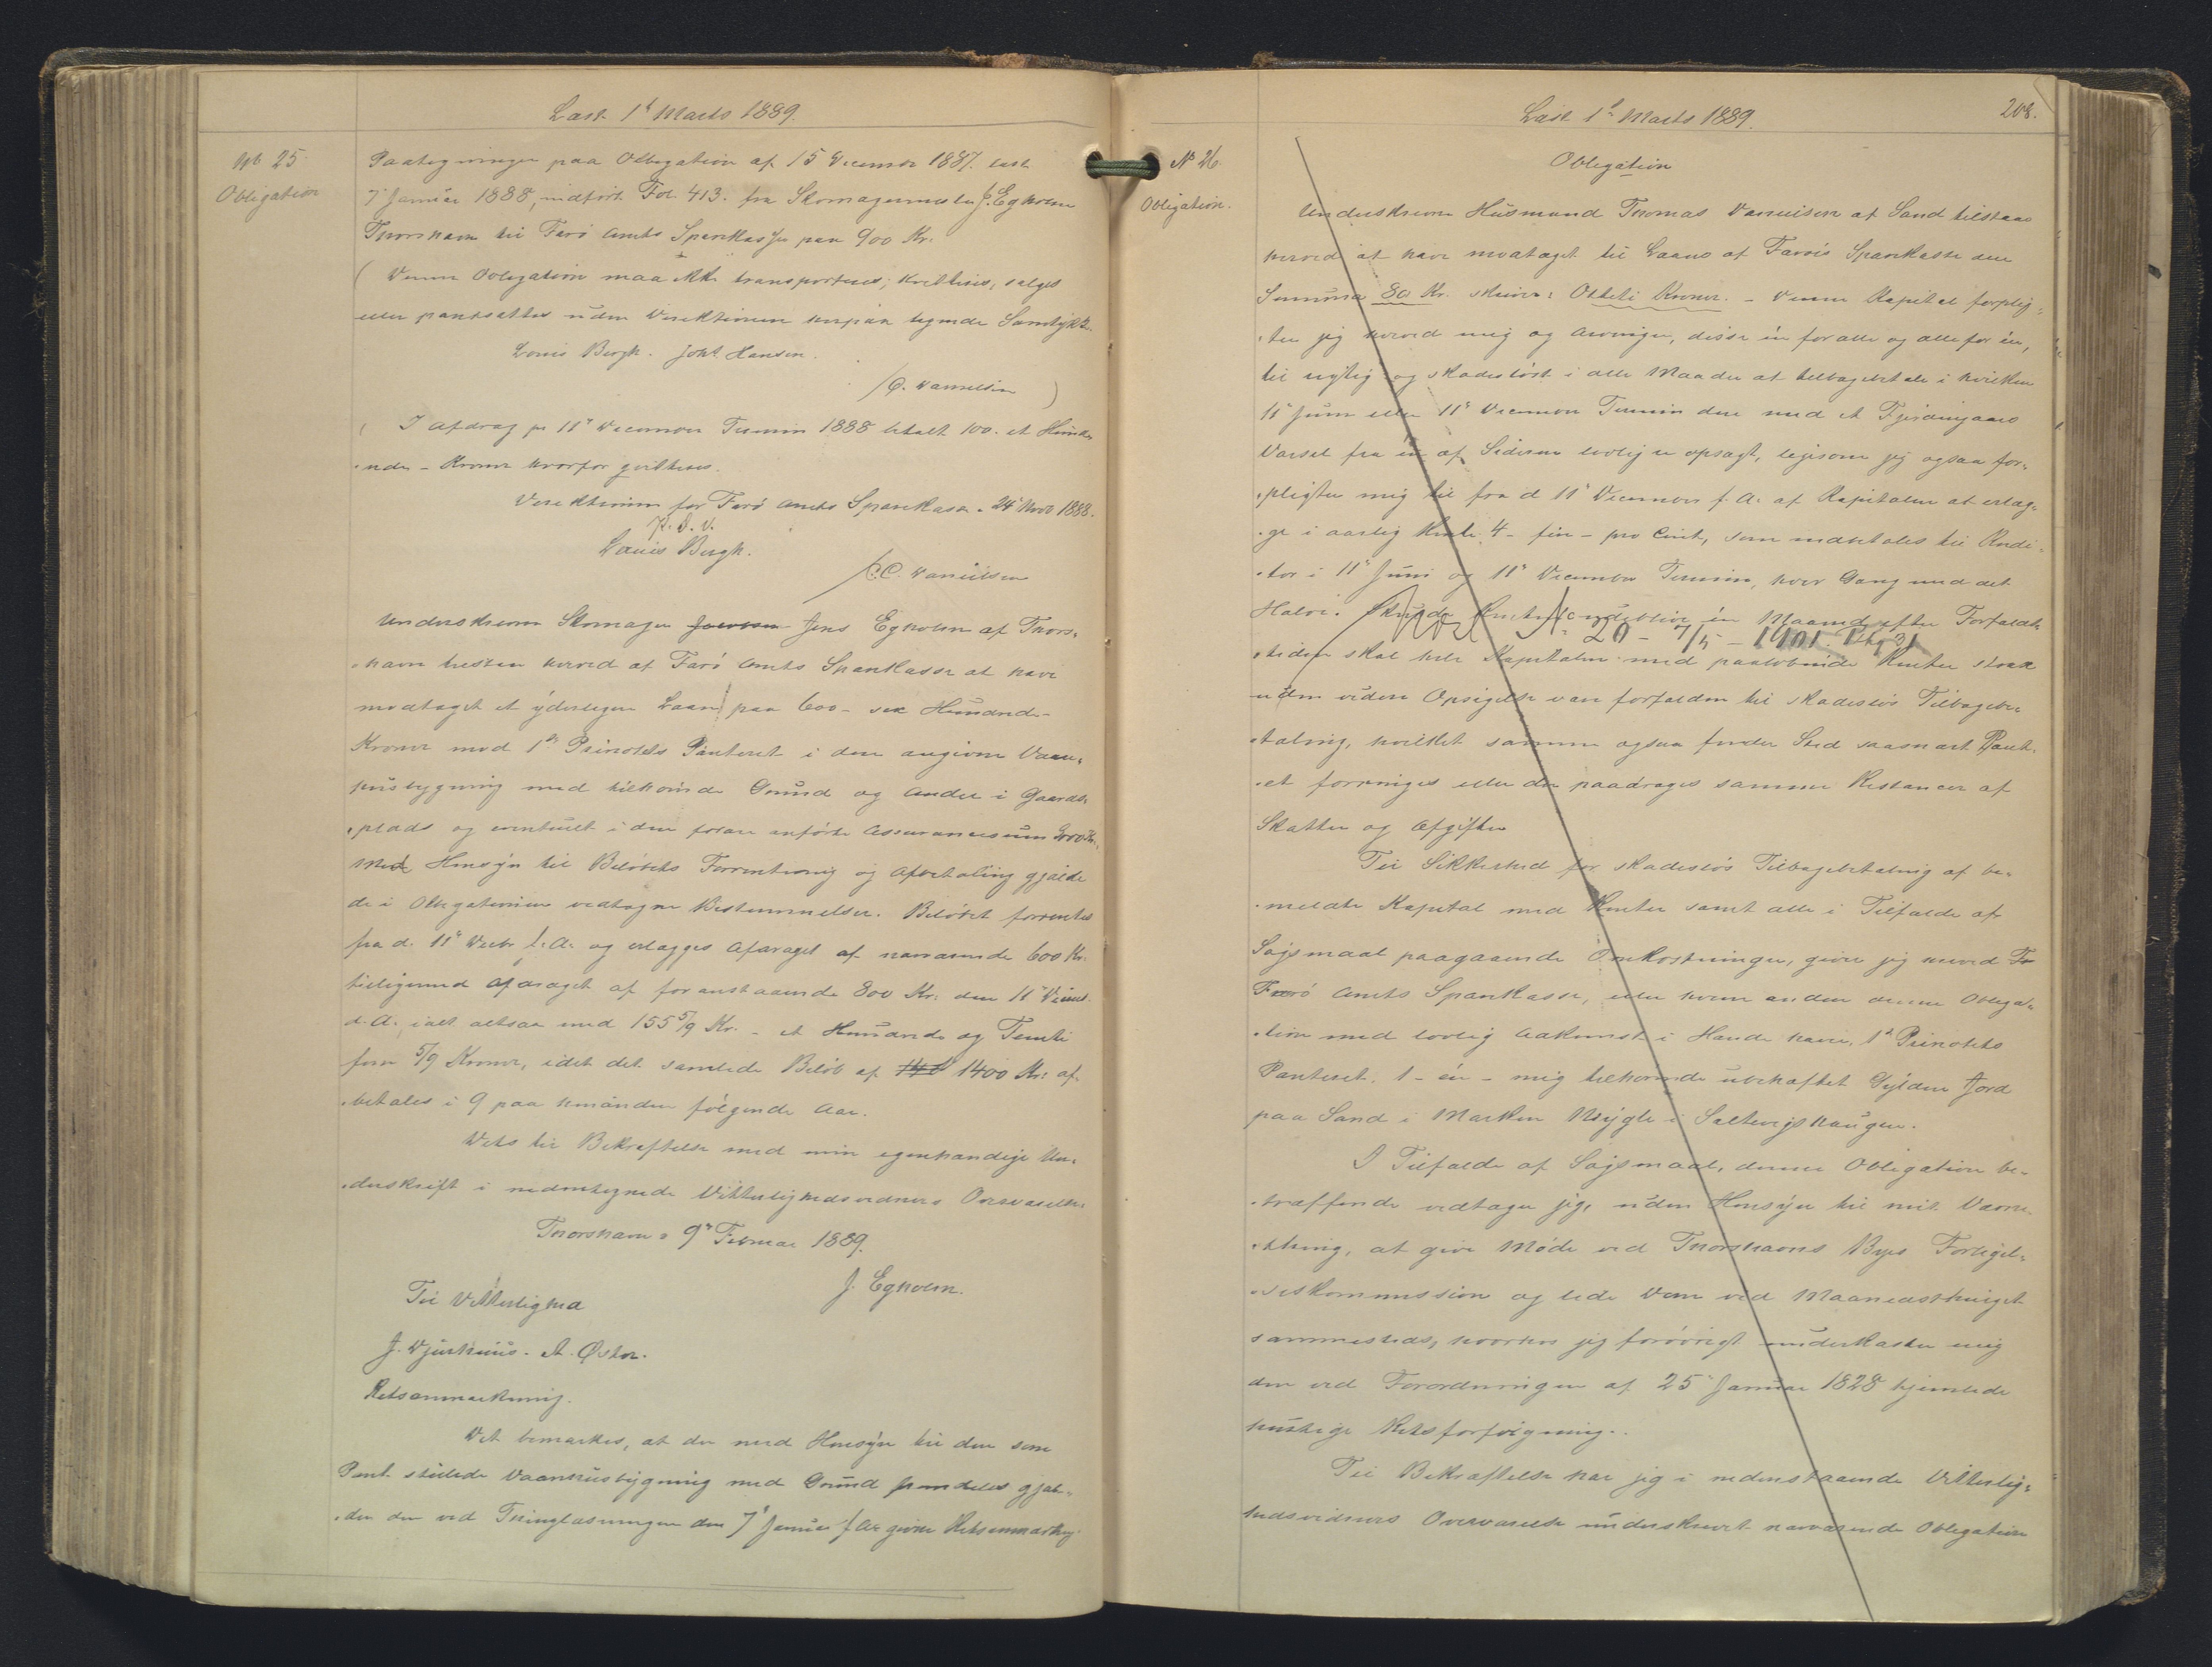 Læst 1' Marts 1889.
No 25
Obligation
Paategninger paa Obligation af 15 December 1887. læst
7' Januar 1888, indført Fol. 413. fra Skomagermester J. Egholm
Thorshavn til Færø Amts Sparekasse paa 900 Kr.
( Denne Obligation maa ikke transporteres, kvitteres, sælges
eller pantsættes uden Direktionens herpaa tegnede Samtykke.
Louis Bergh. Joh. Hansen.
/C. Danielsen )
( I Afdrag pr 11' December Termin 1888 betalt 100. et Hun-
drede - Kroner hvorfor qvitteres.
Direktionen for Færø Amts Sparekasse. 24' Novb 1888.
P. D. V.
Louis Bergh.
/C.C. Danielsen
Underskrevne Skomager Jens Egholm af Thors-
-havn tilstaar herved af Færø Amts Sparekasse at have
modtaget et yderligere Laan paa 600 - sex Hundrede -
Kroner mod 1' Prioritets Panteret i den angivne Vaan-
husbygning med tilhørende Grund og Andel i Gaards-
-plads og eventuelt i den foran anførte Assurancesum
Med Hensyn til Beløbets Forrentning og Afbetaling gjælde
de i Obligationen vedtagne Bestemmelser. Beløbet forrentes
fra d. 11' Decbr f. A. og erlægges Afdraget af nærværende 600 Kr.
tilligemed Afdraget af foranstaaende 800 Kr. den 11'
d. A. ialt altsaa med 155 5/9 Kr. - et Hundrede og Femti
fem 5/9 Kroner, idet det samlede Beløb af 140 1400 Kr. af-
-betales i 9 paa hinanden følgende Aar.
Dets til Bekræftelse med min egenhændige Un-
-derskrift i nedentegnede Vitterlighedsvidners Overværelse.
Thorshavn d 9' Februar 1889.
J. Egholm.
Til Vitterlighed
J. Djurhuus. A. Øster.
Retsanmærkning.
Det bemærkes, at der med Hensyn til den som
Pant stillede Vaanhusbygning med Grund fremdeles gjæl-
-der den ved Thinglæsningen den 7' Januar f. A. givne Retsanmærkng.
Læst 1' Marts 1889.
208.
No 26.
Obligation.
Obligation
Underskrevne Husmand Thomas Danielsen af Sand tilstaar
herved at have modtaget til Laans af Færøs Sparekasse den
Summa 80 Kr. skriver: Otteti Kroner. - Denne Kapital forplig-
-ter jeg herved mig og Arvinger, disse én for alle og alle for én,
til rigtig og skadesløst i alle Maader at tilbagebetale i hvilken
11' Juni eller 11' December Termin den med et Fjerdingaars
Varsel fra én af Siderne lovlig er opsagt, ligesom jeg ogsaa for-
-pligter mig til fra d 11' December f. A. af Kapitalen at erlæg-
-ge i aarlig Rente 4 - fire - pro Cent, som indbetales til Kredi-
-tor i 11' Juni og 11' December Termin, hver Gang med det
Halve. Skulde Renten udeblive én Maaned efter Forfalds-
20 - 7/5 - 1901
-tiden skal hele Kapitalen med paaløbende Renter strax
uden videre Opsigelse være forfalden til skadesløs Tilbagebe-
-taling, hvilket samme ogsaa finder Sted saasnart Pant-
-et forringes eller der paadrages samme Restancer af
Skatter og Afgifter
Til Sikkerhed for skadesløs Tilbagebetaling af be-
-meldte Kapital med Renter samt alle i Tilfælde af
Søgsmaal paagaaende Omkostninger, giver jeg herved
Færø Amts Sparekasse, eller hvem anden denne Obliga-
-tion med lovlig Adkomst i Hænde haver, 1' Prioritets
Panteret. 1 - én - mig tilhørende ubehæftet Gylden Jord
paa Sand i Marken i
I Tilfælde af Søgsmaal, denne Obligation be-
-træffende vedtager jeg, uden Hensyn til mit Værne-
-thing, at give Møde ved Thorshavns Byes Forligel-
-seskommission og lide Dom ved Maanedsthinget
sammesteds, hvorhos jeg forøvrigt underkaster mig
den ved Forordningen af 25' Januar 1828 hjemlede
hurtige Retsforfølgning.
Til Bekræftelse har jeg i nedenstaaende Vitterlig-
hedsvidners Overværelse underskrevet nærværende Obligation